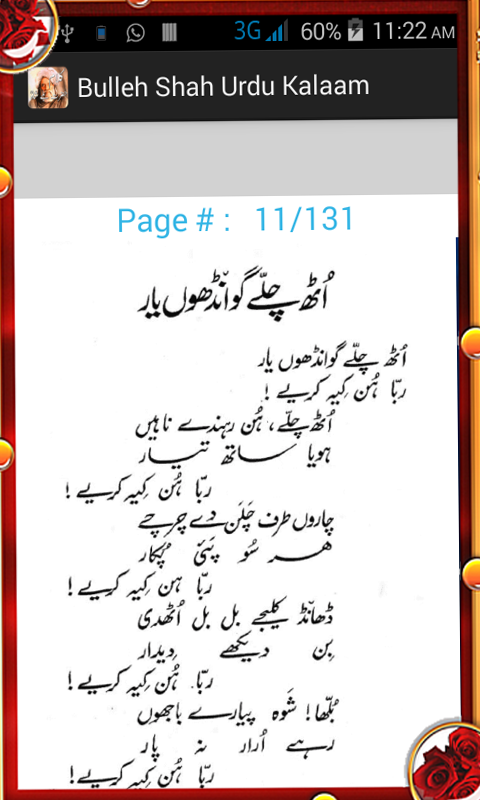 3G 60% 11:22 AM
Bulleh Shah Urdu Kalaam
Page # : 11/131
اُٹھ چلّے گوانڈھوں یار
اُٹھ چلّے گوانڈھوں یار
ربّا ہُن کِیہ کریے !
اُٹھ چلّے، ہُن رہندے ناہیں
ہویا ساتھ تیار
ربّا ہُن کِیہ کریے !
چاروں طرف چَلن دے چرچے
ہر سُو پَئی پُکار
ربّا ہن کِیہ کریے !
ڈھانڈ کلیجے بل بل اُٹھدی
بِن دیکھے دِیدار
ربّا ہُن کِیہ کریے !
بُلّھا! شَوہ پیارے باجھوں
رہے اُرار نہ پار
ربّا ہُن کِیہ کریے !